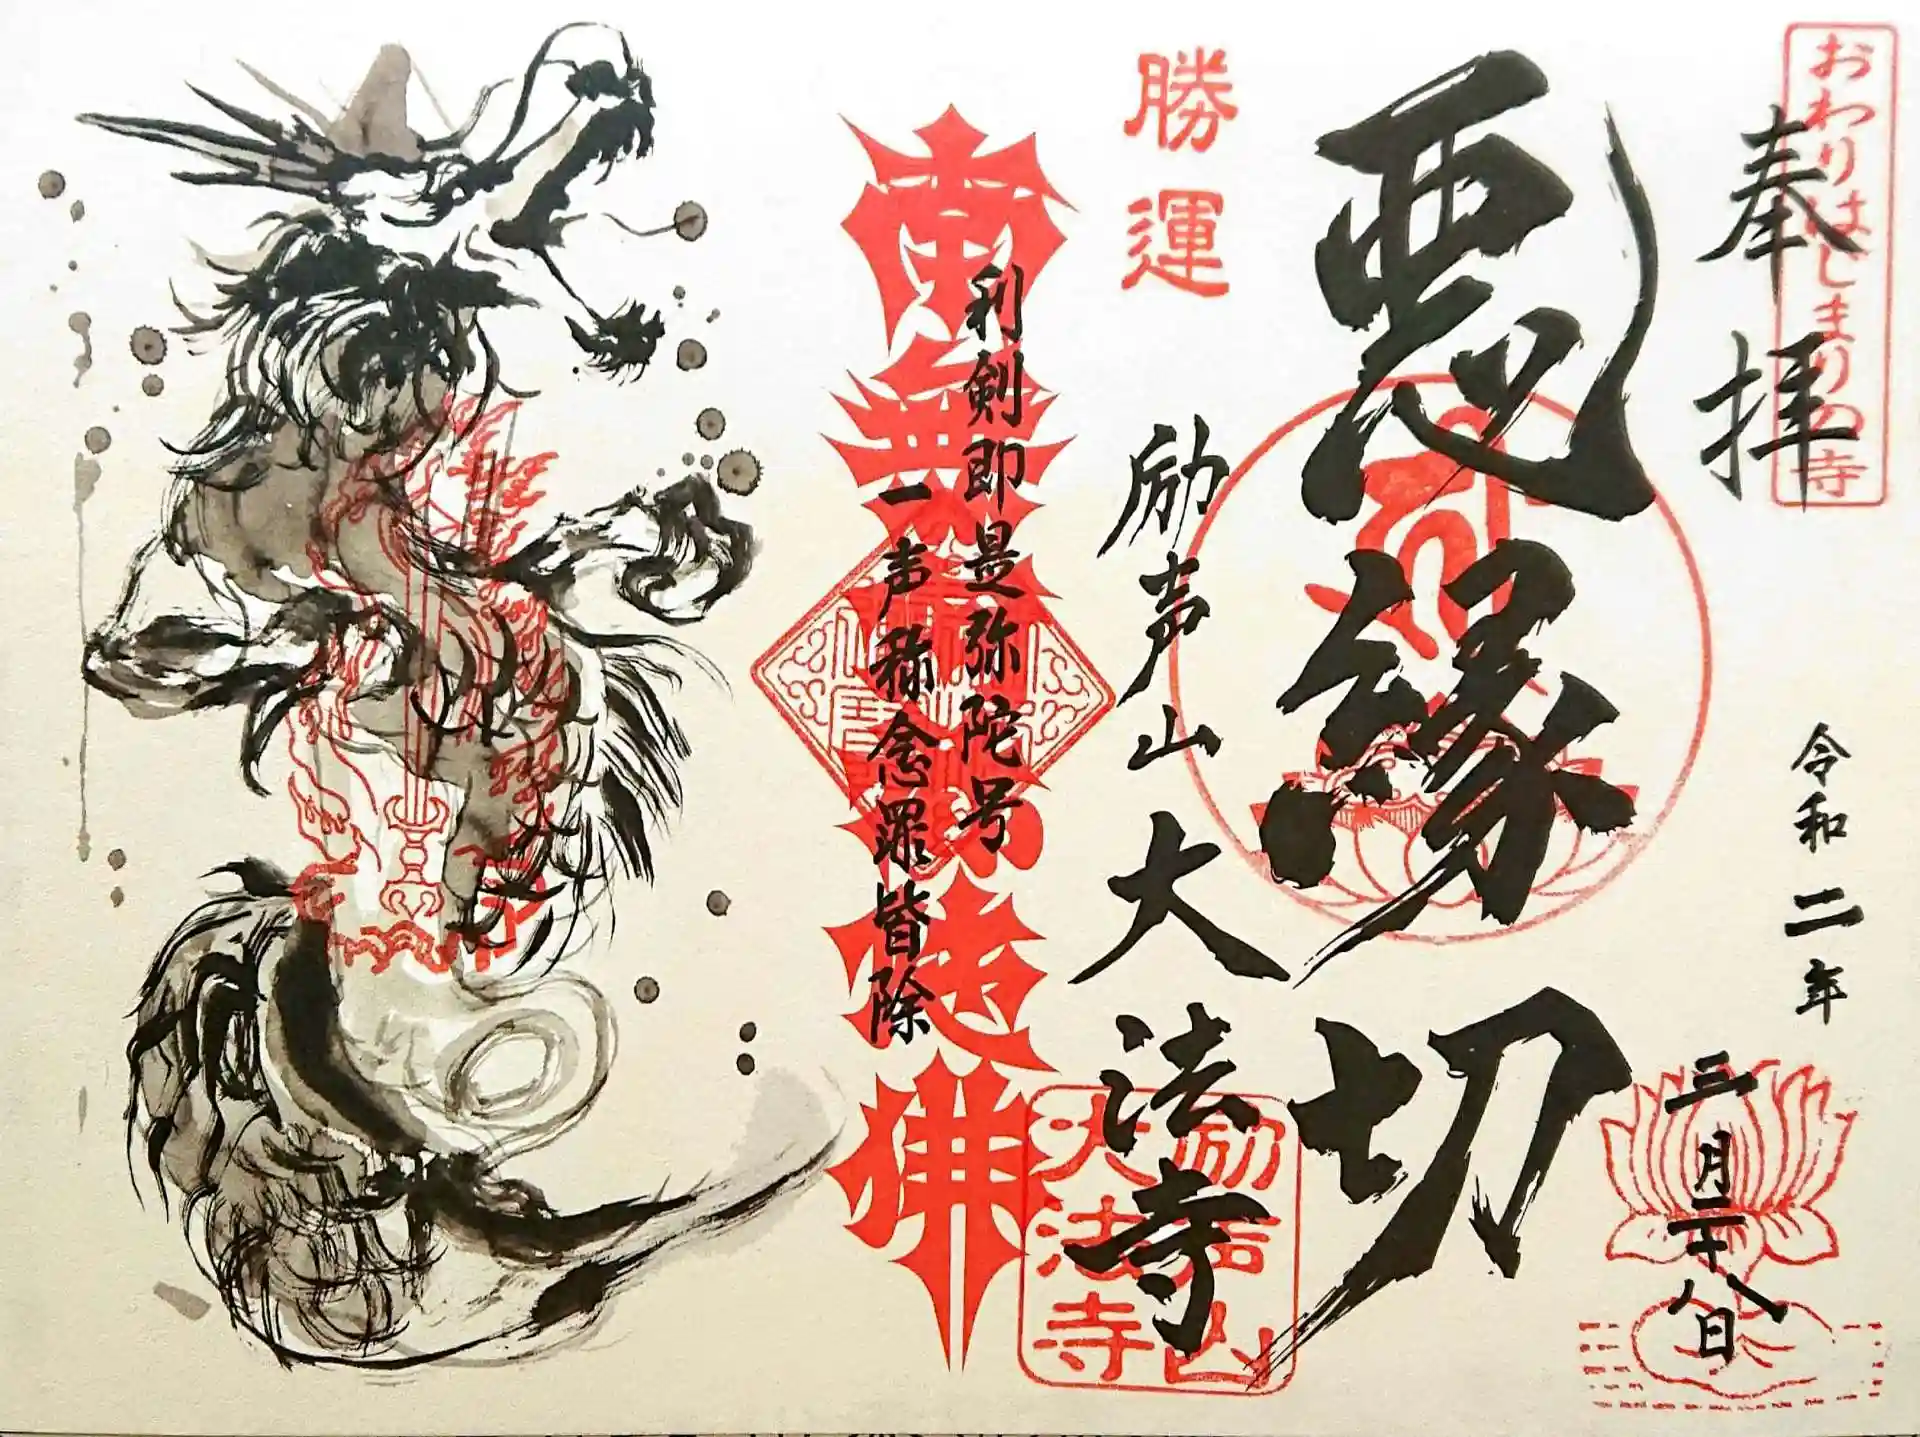 おわりはじまりの寺
奉拝
令和二年
三月二十八日
悪縁切
勝運
励声山大法寺
利剣即是弥陀号
一声称念罪皆除
南無阿弥陀佛
励声山
大法寺